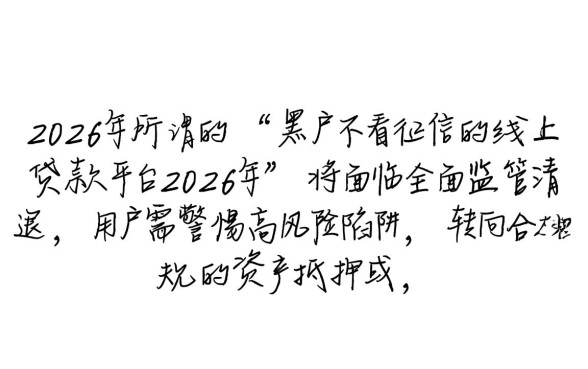 2026年所谓的“黑户不看征信的线上
贷款平台2026年”将面临全面监管清
退，用户需警惕高风险陷阱，转向合
规的资产抵押或，